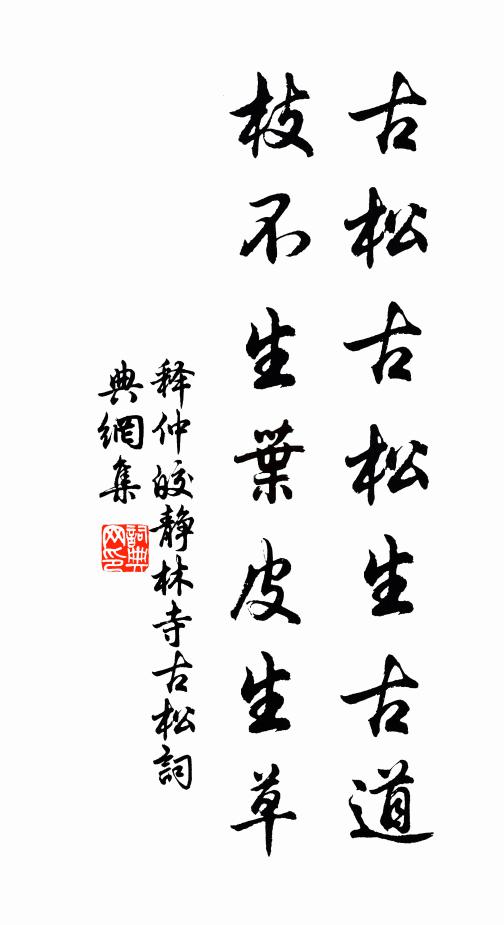 古松古松生古道
枝不生葉皮生草
释仲皎静林寺古松詞
典網集
詞典
网印